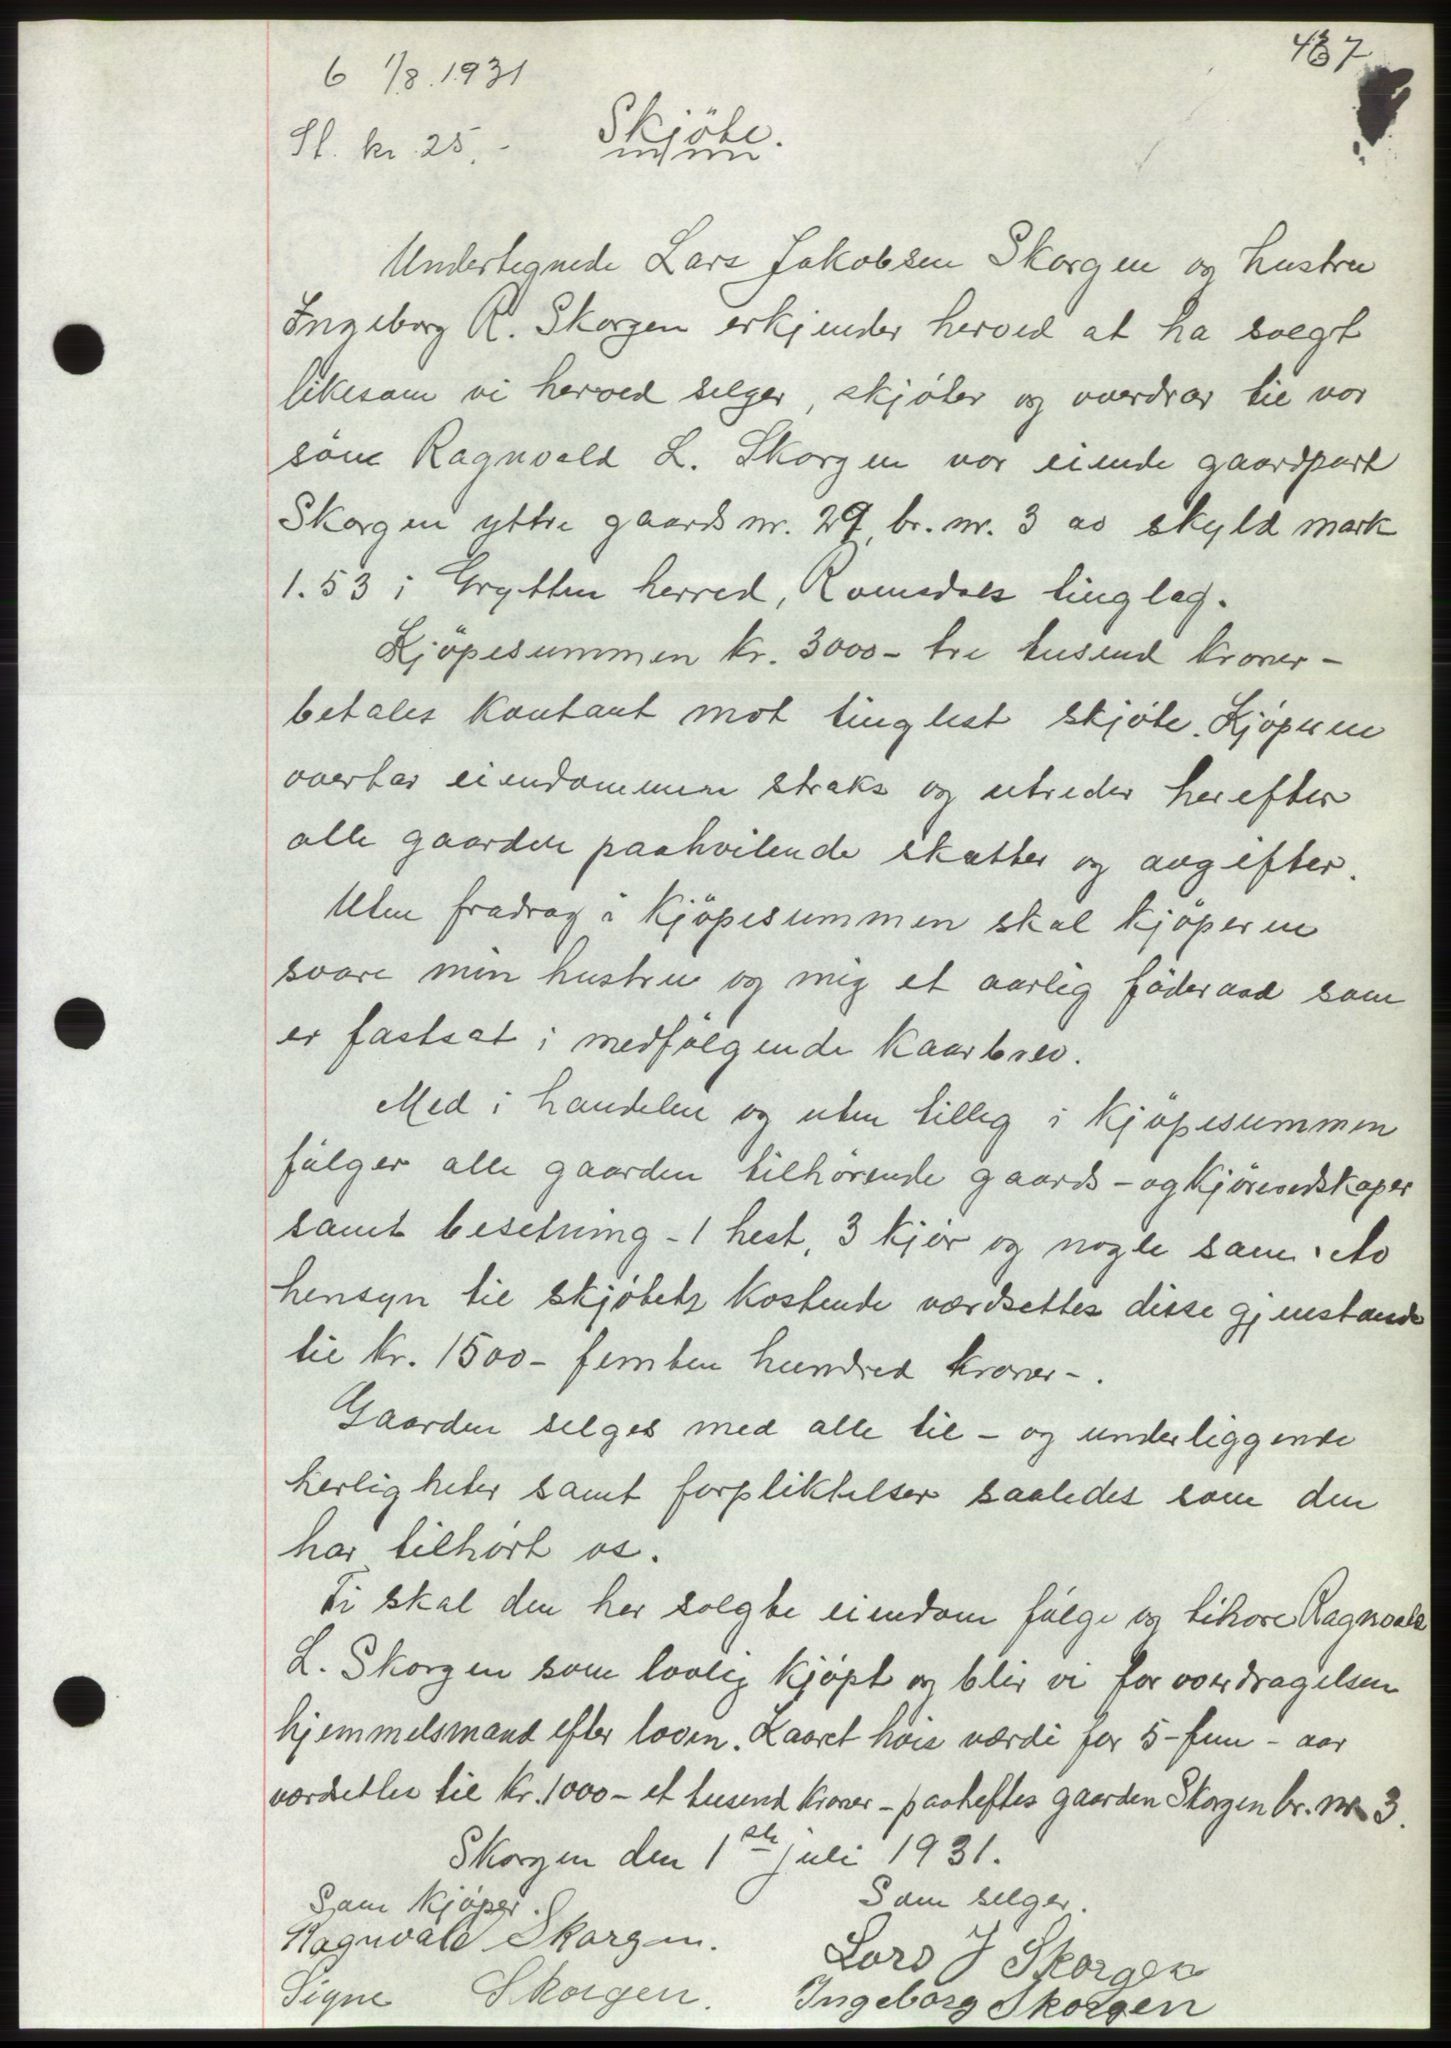 467
6 1/8.1931
St. kr. 25,-
Skjöte.
Undertegnede Lars Jakobsen Skorgen og hustru
Ingeborg R. Skorgen erkjender herved at ha solgt
likesom vi herved selger, skjöter og overdrar til vor
sön Ragnvald L. Skorgen vor eiende gaardpart
Skorgen yttre gaards nr. 29, br. nr. 3 av skyld mark
1.53 i Grytten herred, Romsdals tinglag.
Kjöpesummen kr. 3000- tre tusend kroner-
betales kontant mot tinglest skjöte. Kjöperen
overtar eiendommen straks og utreder herefter
alle gaarden paahvilende skatter og avgifter.
Uten fradrag i kjöpesummen skal kjöperen
svare min hustru og mig et aarlig föderaad som
er fastsat i medfölgende kaarbrev.
Med i handelen og uten tillæg i kjöpesummen
fölger alle gaarden tilhörende gaards- og kjöreredskaper
samt besetning - 1 hest, 3 kjör og nogle sau. Av
hensyn til skjötets kostende værdsettes disse gjenstande
til kr. 1500- femten hundred kroner-.
Gaarden selges med alle til- og underliggende
herligheter samt forpliktelser saaledes som den
har tilhört os.
Ti skal den her solgte eiendom fölge og tilhöre Ragnvald
L. Skorgen som lovlig kjöpt og blir vi for overdragelsen
hjemmelsmand efter loven. Kaaret hvis værdi for 5-fem- aar
værdsettes til kr. 1000- et tusend kroner - paaheftes gaarden Skorgen br. nr. 3.
Skorgen den 1ste juli 1931.
Som kjöper. Som selger.
Ragnvald Skorgen. Lars J Skorgen
Signe Skorgen. Ingeborg Skorgen